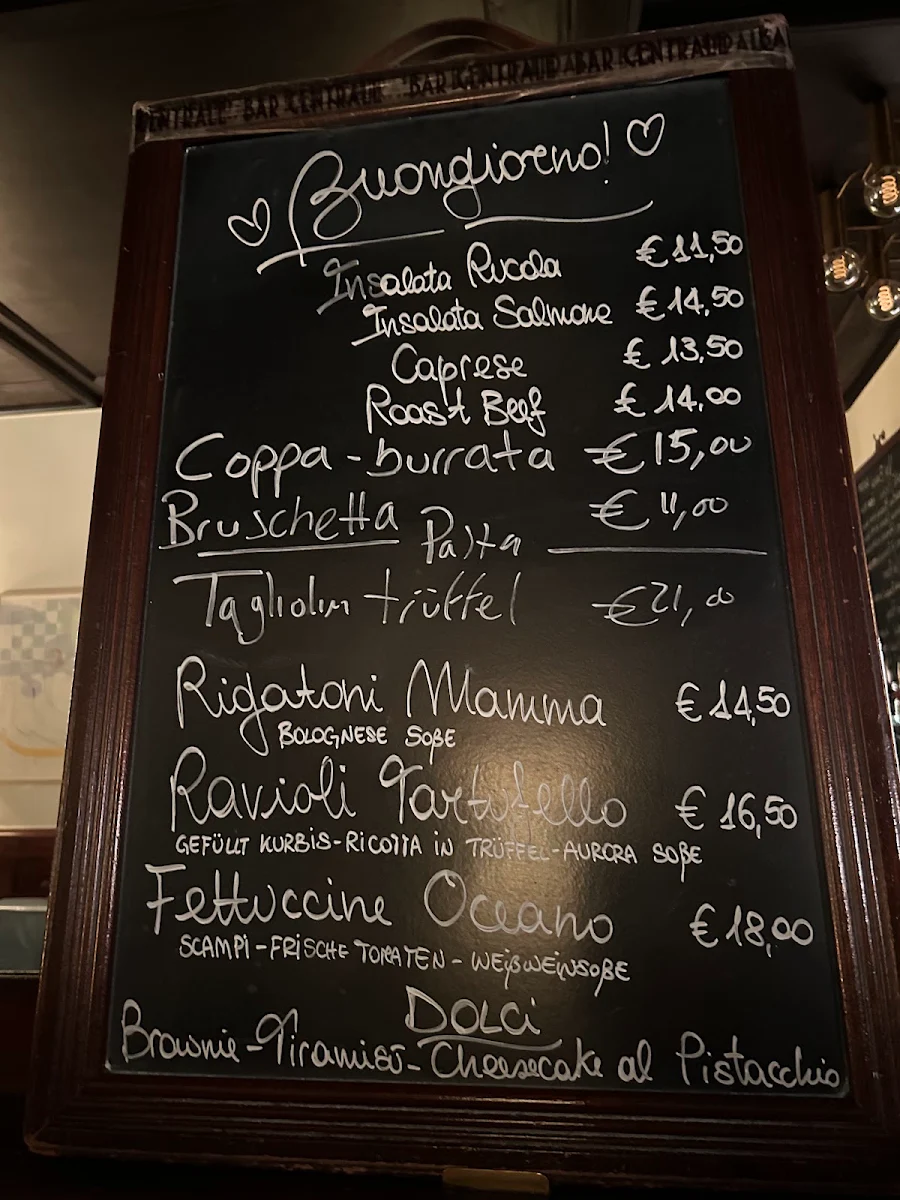 BAR CENTRALE BAR CENTRALE BAR CENTRALE
Buongiorno!
Insalata Rucola € 11,50
Insalata Salmone € 14,50
Caprese € 13,50
Roast Beef € 14,00
Coppa-burrata € 15,00
Bruschetta € 11,00
Pasta
Tagliolini trüffel € 21,00
Rigatoni Mamma € 14,50
BOLOGNESE SOßE
Ravioli Tartufello € 16,50
GEFÜLLT KURBIS-RICOTTA iN TRÜFFEL-AURORA SOßE
Fettuccine Oceano € 18,00
SCAMPI-FRISCHE TOMATEN-WEißWEINSOßE
DOLCi
Brownie-Tiramisú-Cheesecake al Pistacchio